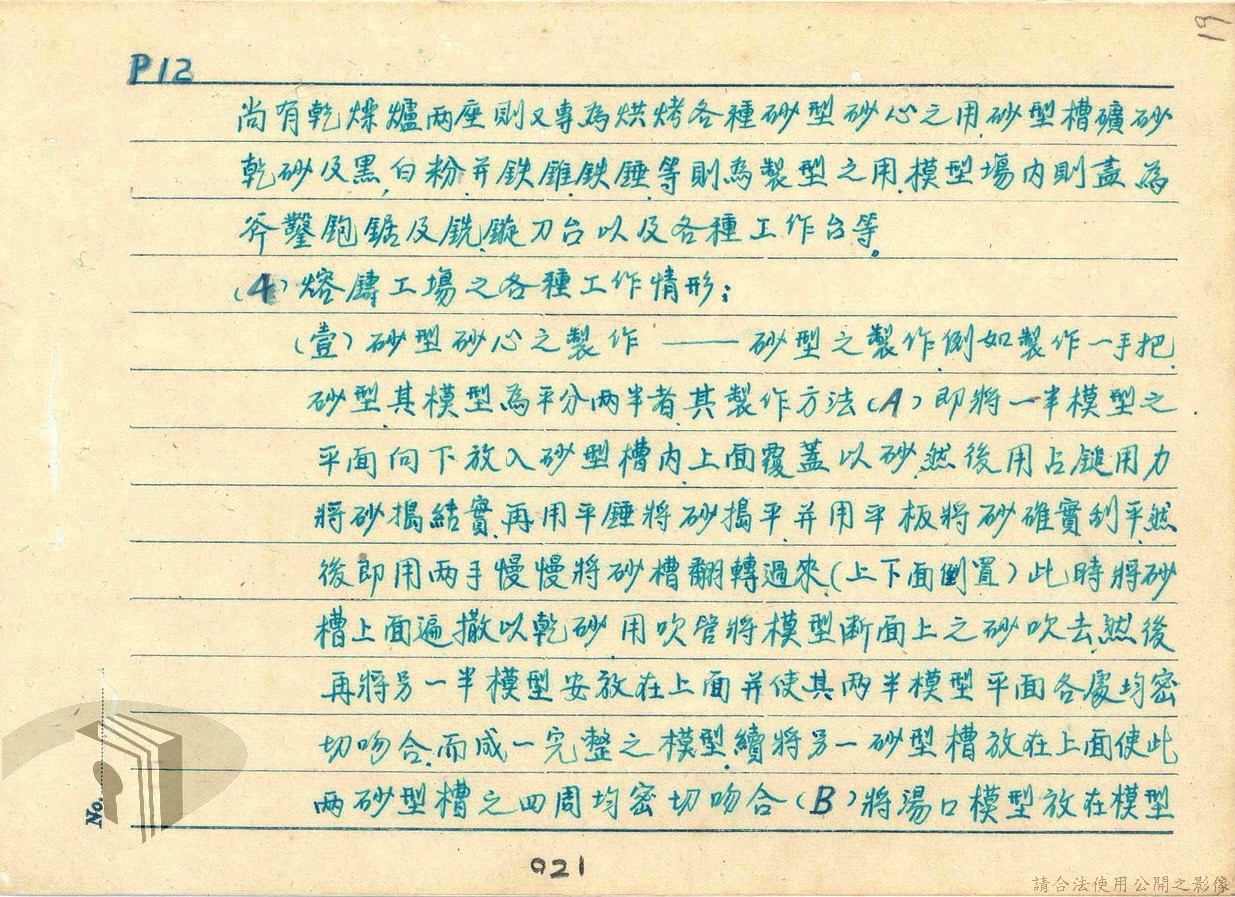 19
P12
尚有乾燥爐兩座則又專為烘烤各種砂型砂心之用.砂型槽礦砂
乾砂及黑,白粉并鉄錐鉄錘等則為製型之用.模型場内則盡為
斧鑿鉋鋸及銑.鏇刀台以及各種工作台等。
(4)熔鑄工場之各種工作情形;
(壹)砂型砂心之製作 —— 砂型之製作例如製作一手把.
砂型.其模型為平分兩半者.其製作方法(A)即將一半模型之
平面向下放入砂型槽内.上面覆蓋以砂.然後用占鎚用力
將砂搗結實.再用平錘將砂搗平.并用平板將砂確實刮平.然
後即用兩手慢慢將砂槽翻轉過來.(上下面倒置)此時將砂
槽上面遍撒以乾砂.用吹管將模型断面上之砂吹去.然後
再將另一半模型安放在上面并使其兩半模型平面各處均密
切吻合.而成一完整之模型.續將另一砂型槽放在上面使此
兩砂型槽之四周均密切吻合(B)將湯口模型放在模型
No.
021
請合法使用公開之影像